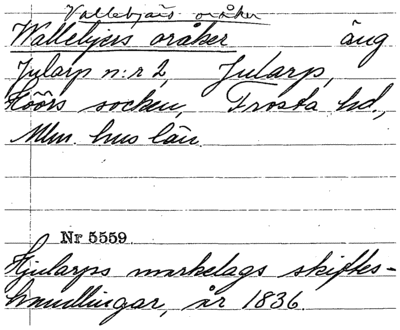 Vallebjärs oråker
Wallebjers oråker äng
Jularp n:r 2, Jularp,
Höörs socken, Frosta hd.,
Mlm. hus län.
Nr 5559
Hjularps markelags skiftes-
handlingar, år 1836.